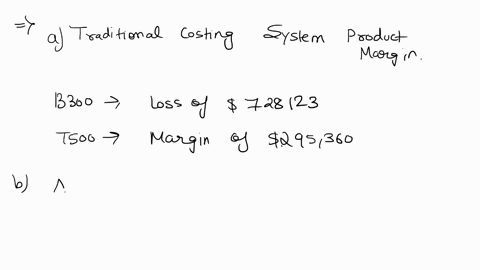 => a) Traditional Costing System Product
Margin.
B300 → Loss of $ 728123
T500 → Margin of $295,360
b)